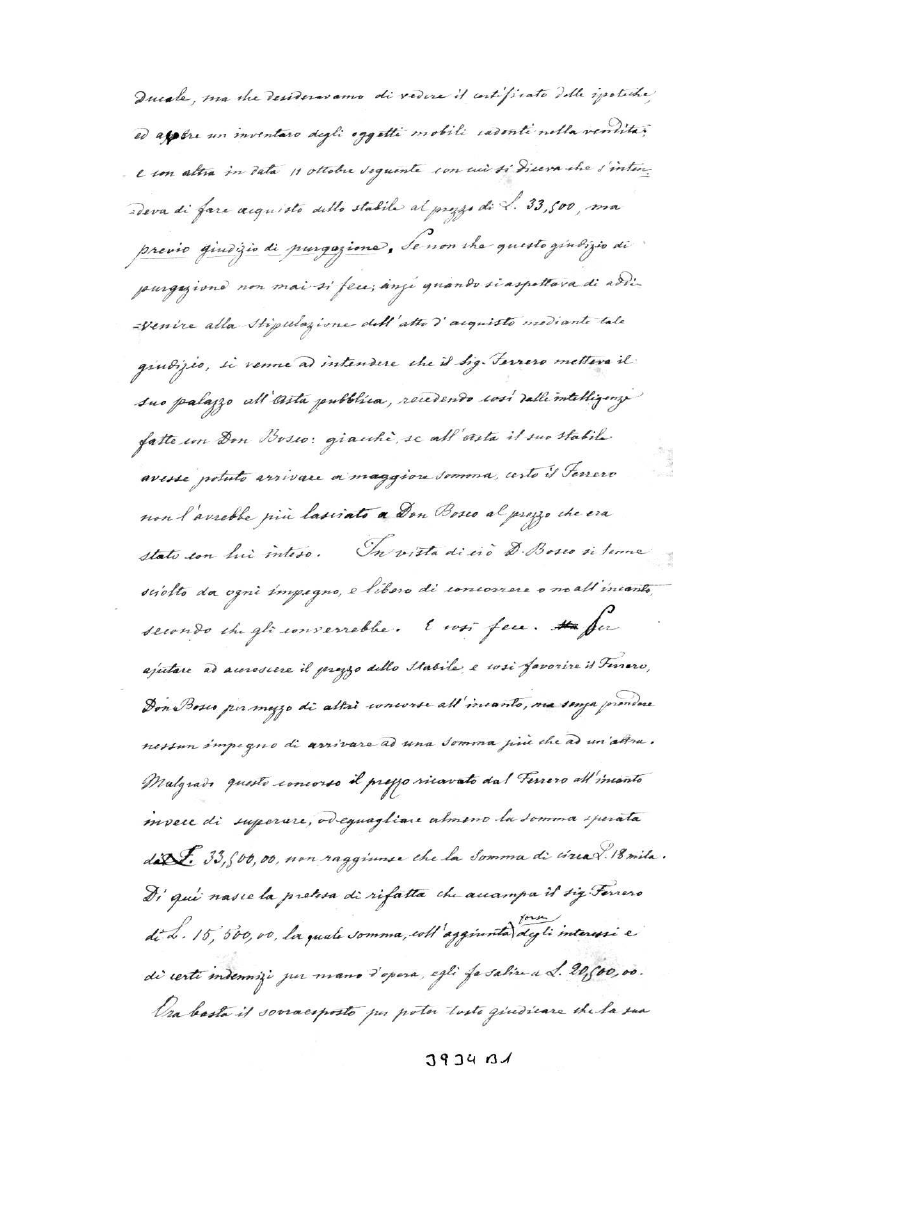 Ducale, ma che desideravamo di vedere il certificato delle ipoteche,
ed avere un inventaro degli oggetti mobili cadenti nella vendita;
e con altra in data 11 ottobre seguente con cui si diceva che s'inten-
-deva di fare acquisto dello stabile al prezzo di L. 33,500, ma
previo giudizio di purgazione. Se non che questo giudizio di
purgazione non mai si fece; anzi quando si aspettava di addi-
=venire alla stipulazione dell'atto d'acquisto mediante tale
giudizio, si venne ad intendere che il Sig. Ferrero metteva il
suo palazzo all'asta pubblica, recedendo così dalle intelligenze
fatte con Don Bosco: giacchè, se all'asta il suo stabile
avesse potuto arrivare a maggiore somma, certo il Ferrero
non l'avrebbe più lasciato a Don Bosco al prezzo che era
stato con lui inteso. In vista di ciò D. Bosco si tenne
sciolto da ogni impegno, e libero di concorrere o no all'incanto,
secondo che gli converrebbe. E così fece. Per
ajutare ad accrescere il prezzo dello stabile e così favorire il Ferrero,
Don Bosco per mezzo di altri concorse all'incanto, ma senza prendere
nessun impegno di arrivare ad una somma più che ad un'altra.
Malgrado questo concorso il prezzo ricavato dal Ferrero all'incanto
invece di superare, od eguagliare almeno la somma sperata
di L. 33,500,00, non raggiunse che la somma di circa L. 18 mila.
Di quì nasce la pretesa di rifatta che accampa il sig. Ferrero
di L. 15,500,00, la quale somma, coll'aggiunta forse degli interessi e
di certi indennizi per mano d'opera, egli fa salire a L. 20,500,00.
Ora basta il sovraesposto per poter tosto giudicare che la sua
3934 B1